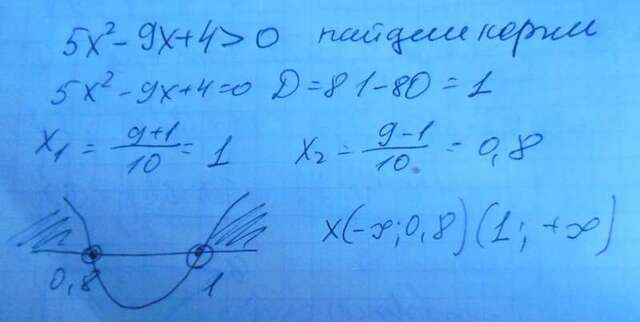 5x² - 9x + 4 > 0 найдем корни
5x² - 9x + 4 = 0 D = 81 - 80 = 1
x₁ = (9+1)/10 = 1 x₂ = (9-1)/10 = 0,8
x(-∞; 0,8) (1; +∞)
0,8 1